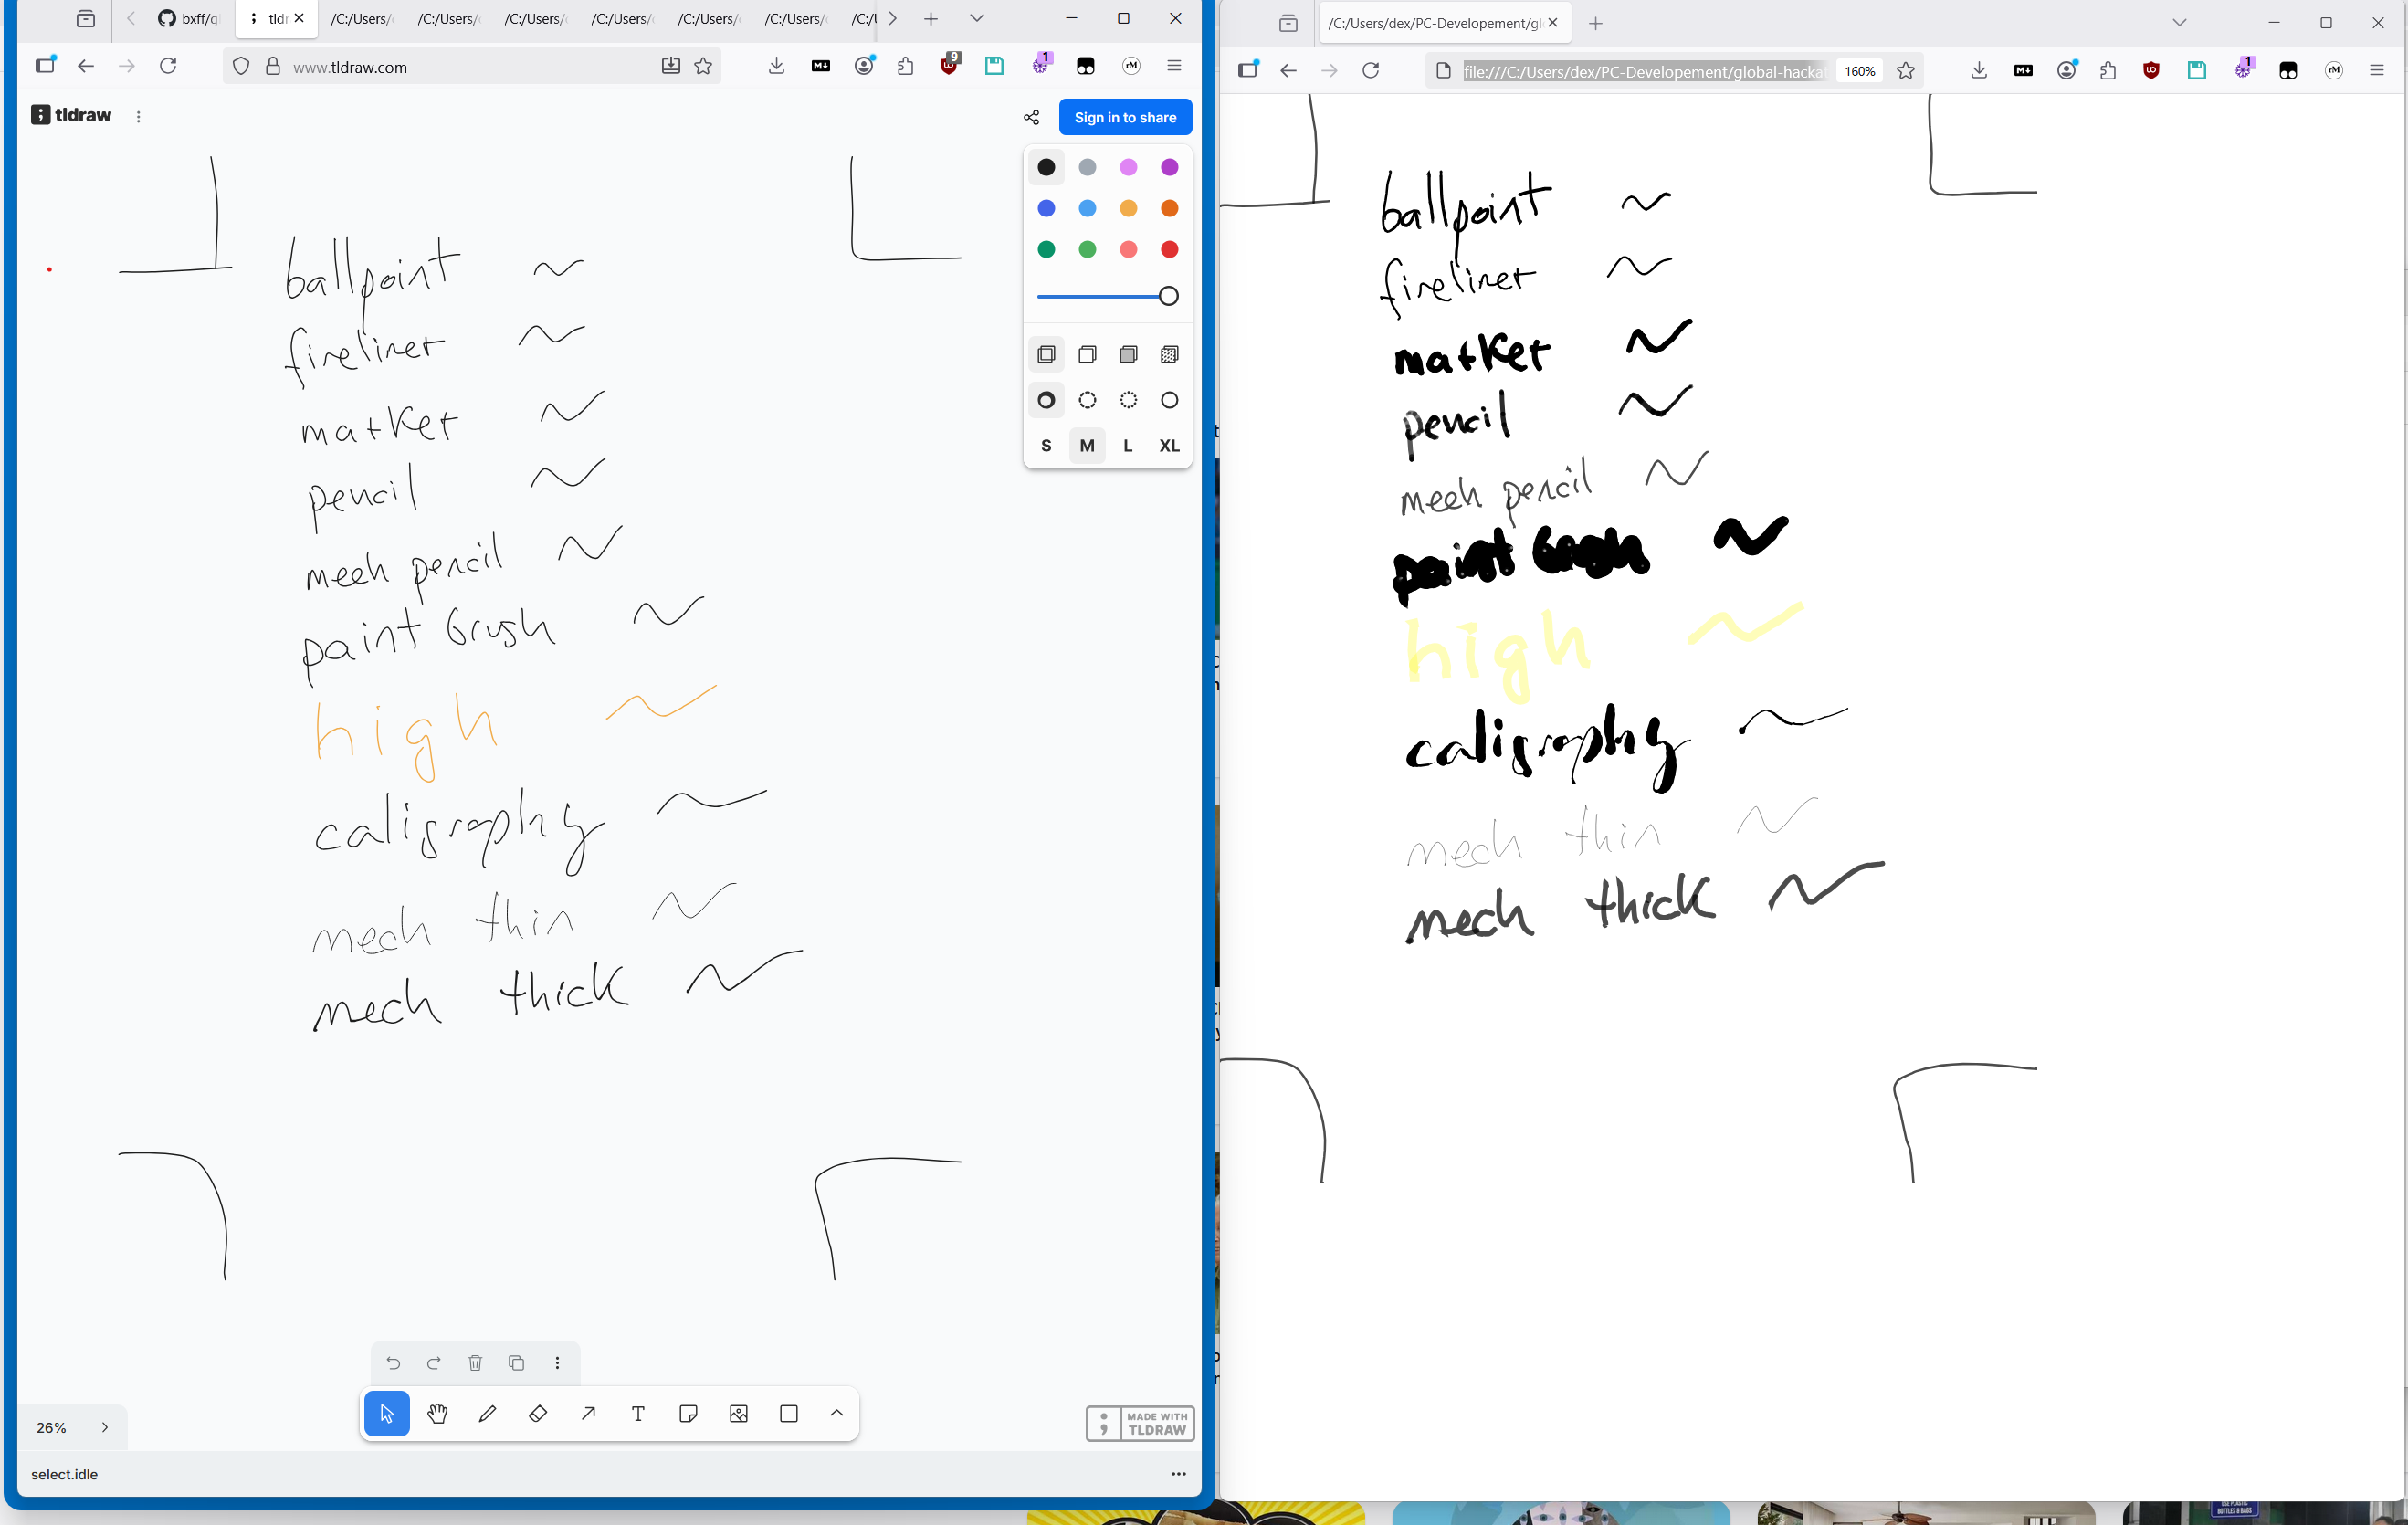 bxff/g
tldr
/C:/Users/
/C:/Users/
/C:/Users/
/C:/Users/
/C:/Users/
/C:/Users/
www.tldraw.com
9
1
tldraw
Sign in to share
S M L XL
ballpoint
fineliner
marker
pencil
mech pencil
paint brush
high
caligraphy
mech thin
mech thick
26%
MADE WITH
TLDRAW
select.idle
/C:/Users/dex/PC-Developement/gl
file:///C:/Users/dex/PC-Developement/global-hackat
160%
1
ballpoint
fineliner
marker
pencil
mech pencil
paint brush
high
caligraphy
mech thin
mech thick